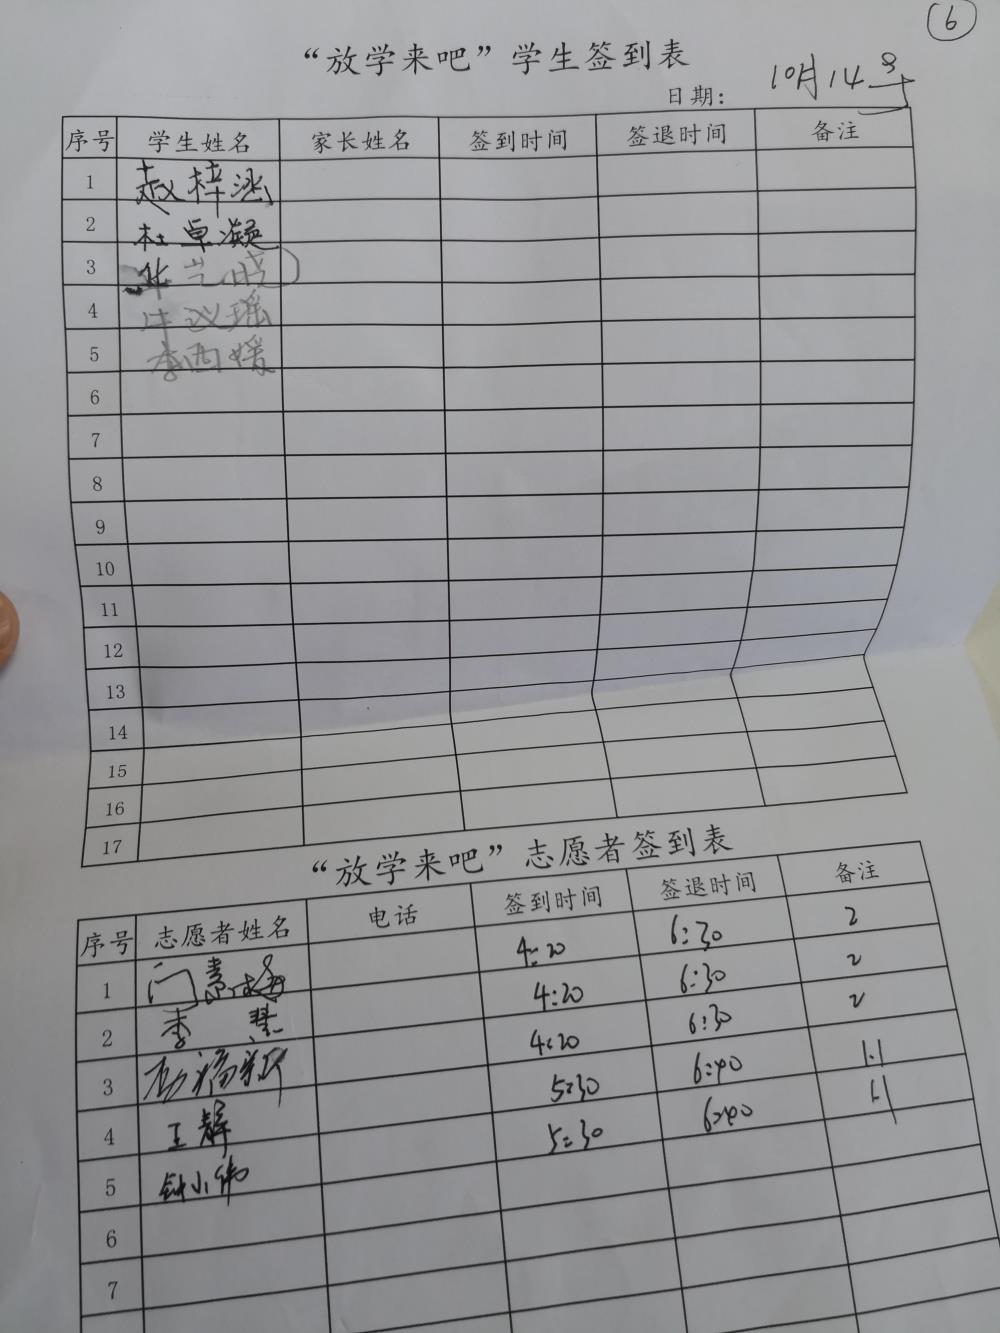 6
“放学来吧”学生签到表
日期： 10月14号
序号 学生姓名 家长姓名 签到时间 签退时间 备注
1 赵梓涵
2 杜卓凝
3
4 牛议瑶
5 李西媛
6
7
8
9
10
11
12
13
14
15
16
17
“放学来吧”志愿者签到表
序号 志愿者姓名 电话 签到时间 签退时间 备注
1 门慧 4:20 6:30 2
2 李慧 4:20 6:30 2
3 4:20 6:30 2
4 王静 5:30 6:40 1.1
5 钟小伟 5:30 6:40 1.1
6
7